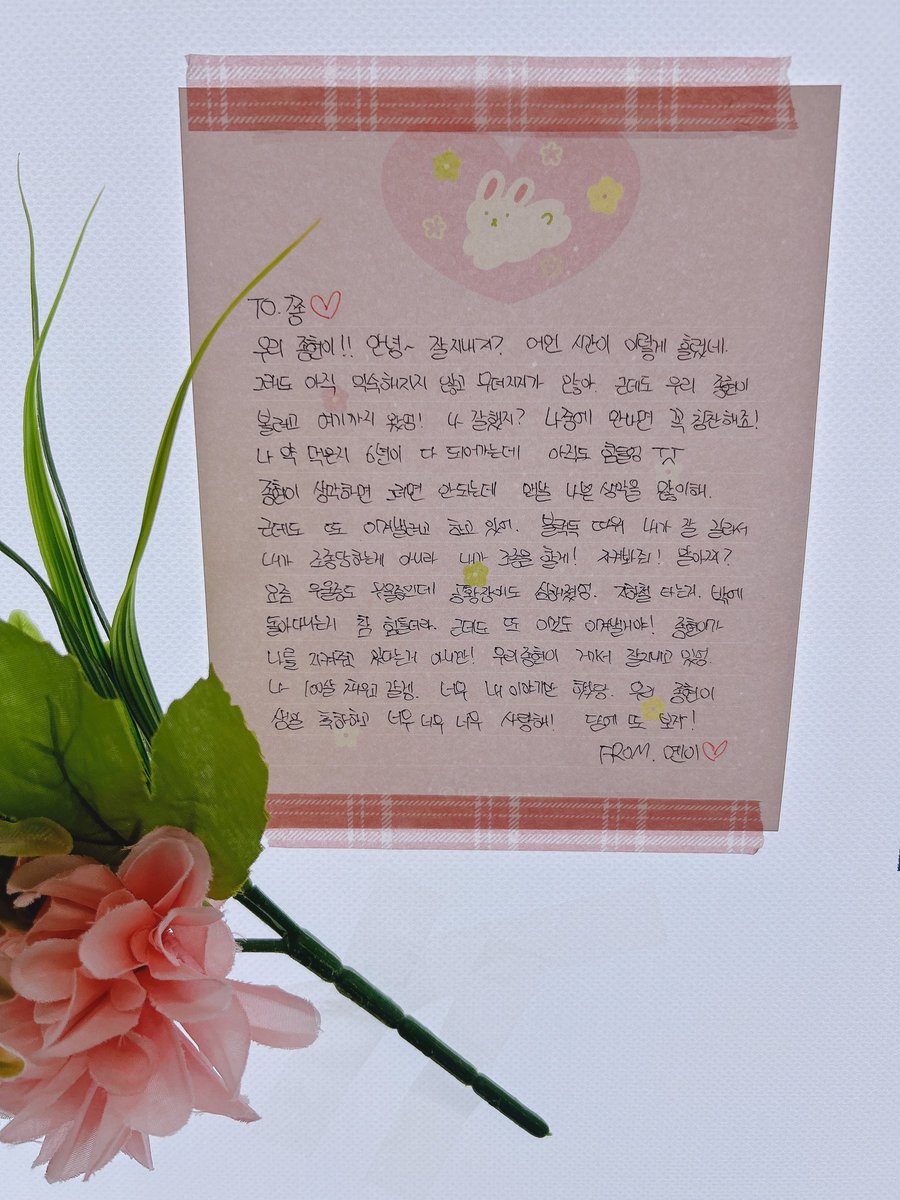 TO. 쫑
우리 종현이!! 안녕~ 잘지내지? 어언 시간이 이렇게 흘렀네.
그래도 아직 익숙해지지 않고 무뎌지지가 않아. 근데도 우리 종현이
볼려고 여기까지 왔엉! 나 잘했지? 나중에 만나면 꼭 칭찬해죠!
나 약 먹은지 6년이 다 되어가는데 아직도 힘들엉 ㅜㅜ
종현이 생각하면 그러면 안되는데 맨날 나쁜 생각을 많이해.
근데도 또 이겨낼려고 하고 있어. 블랙독 따위 내가 잘 길러서
내가 조종당하는게 아니라 내가 조종을 할게! 지켜봐줘! 알아찌?
요즘 우울증도 우울증인데 공황장애도 심해졌엉. 지하철 타는거. 밖에
돌아다니는거 참 힘들더라. 근데도 또 이것도 이겨낼거야! 종현이가
나를 지켜주고 있다는거 아니깐! 우리종현이 거기서 잘지내고 있성
나 100살 채우고 갈겡. 너무 내 이야기만 했당. 우리 종현이
생일 축하하고 너무 너무 너무 사랑해! 담에 또 보자!
FROM. 옌이